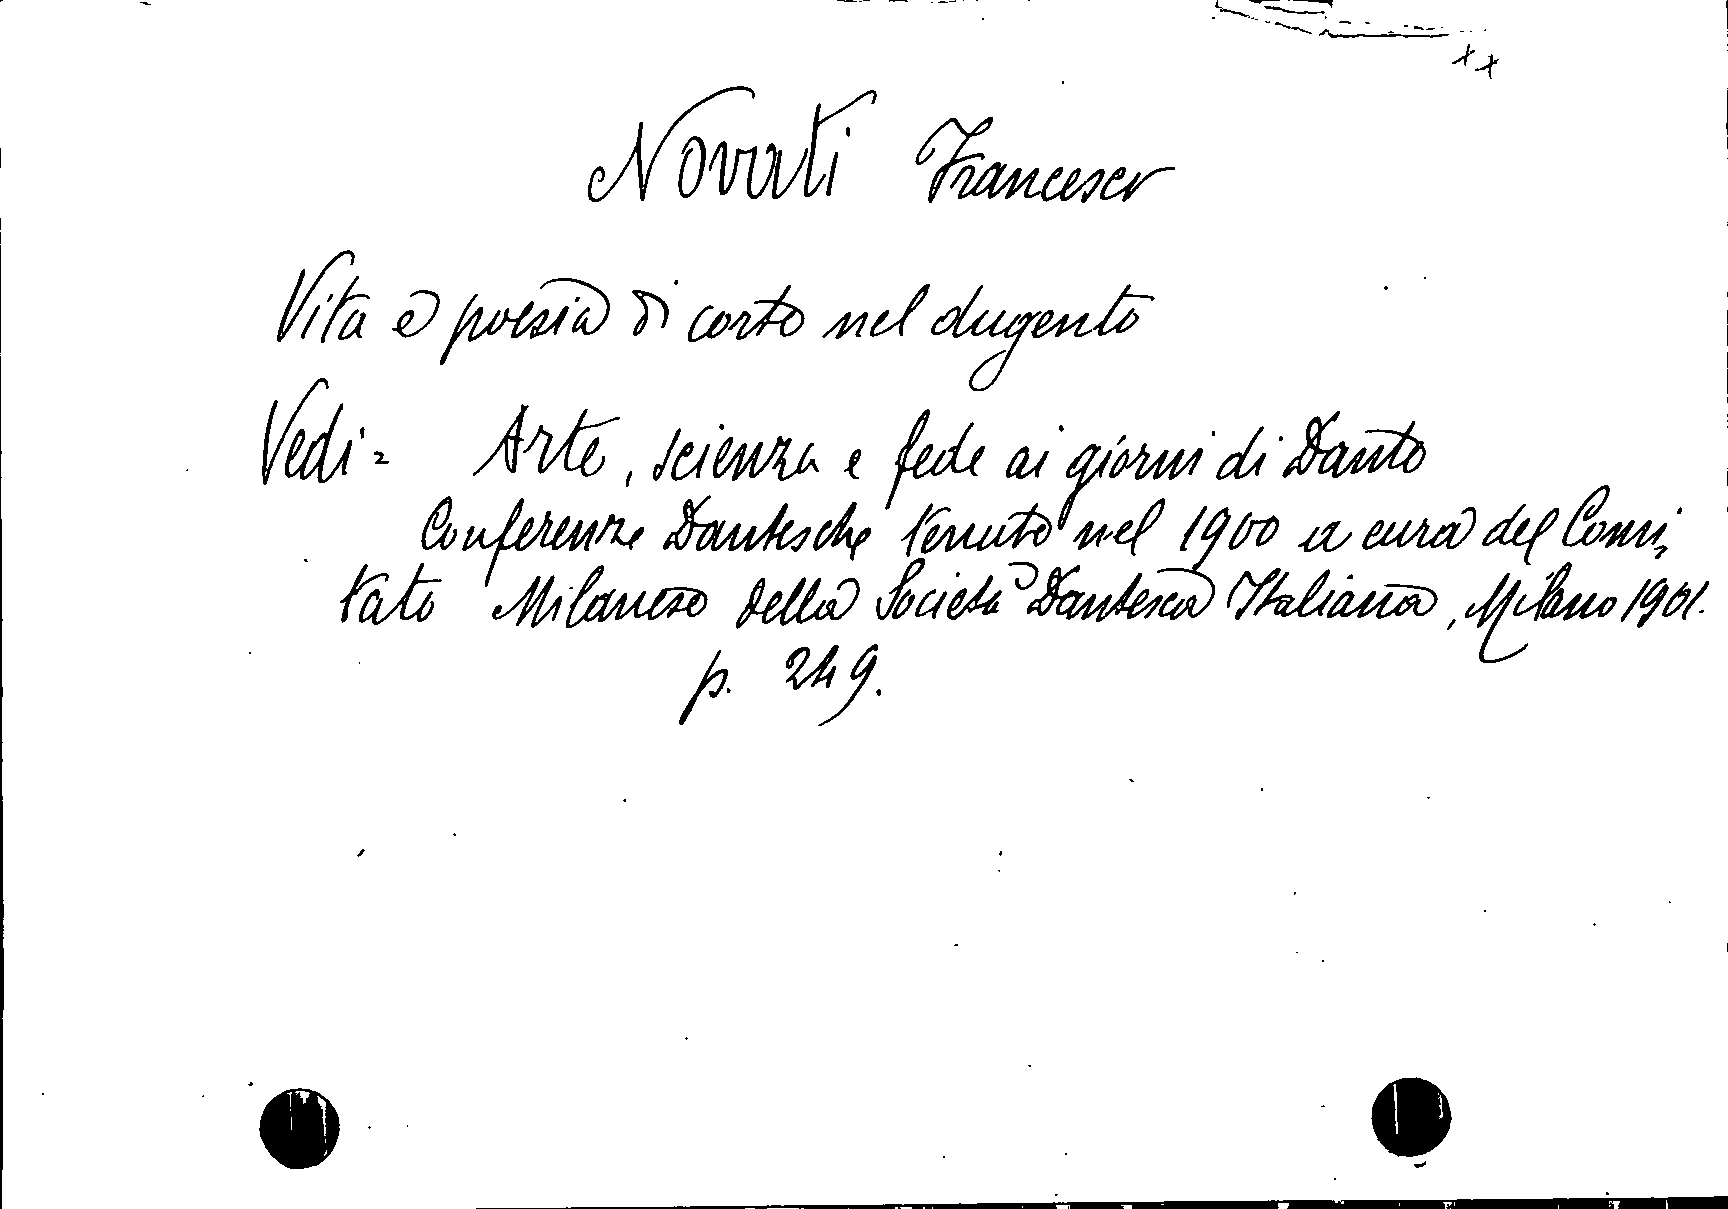 x x
Novati Francesco
Vita e poesia di corte nel dugento
Vedi = Arte, scienza e fede ai giorni di Dante
Conferenze Dantesche tenute nel 1900 a cura del Comi=
tato Milanese della Società Dantesca Italiana, Milano 1901.
p. 249.